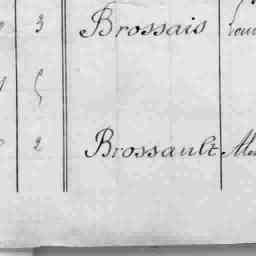 3 Brossais
2 Brossault